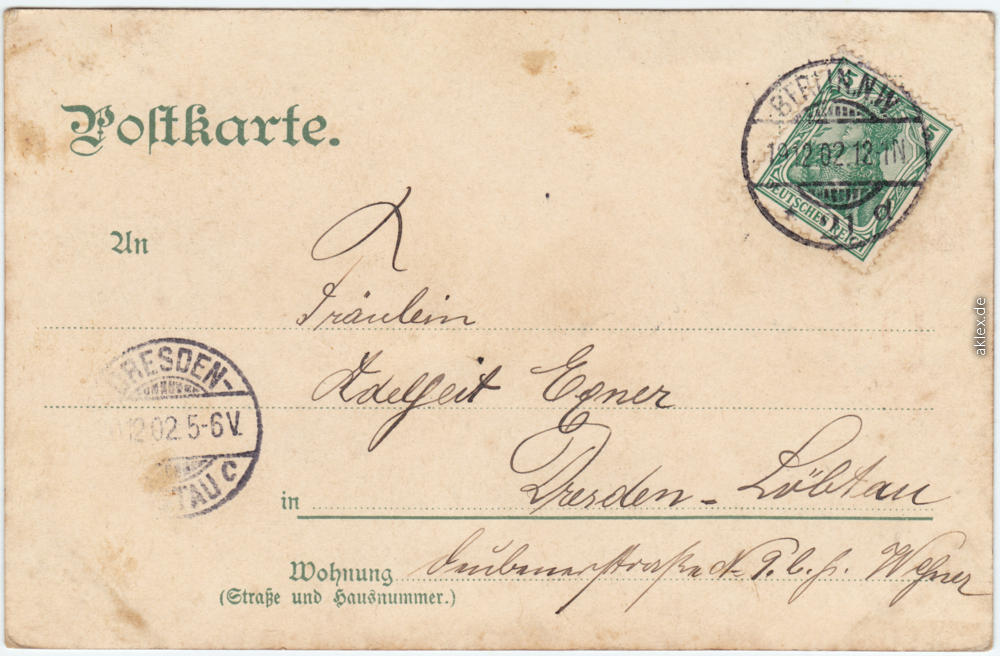 Postkarte.
BERLIN, N.W.
12.02.12-1N
DEUTSCHES REICH
5
5
An
Fräulein
Adelheit Exner
DRESDEN-
12.02. 5-6V.
TAU C
in Dresden-Löbtau
Wohnung Deubenerstraße
(Straße und Hausnummer.)
aklex.de